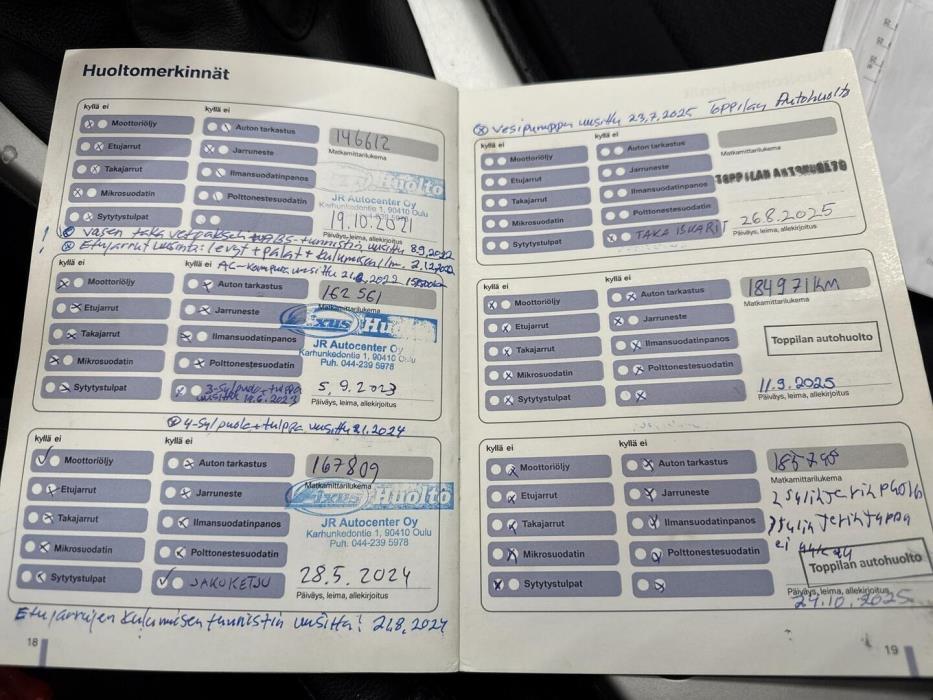 Huoltomerkinnät
kyllä ei kyllä ei
Moottoriöljy Auton tarkastus 146612
Etujarrut Jarruneste Matkamittarilukema
Takajarrut Ilmansuodatinpanos Huolto
Mikrosuodatin Polttonestesuodatin JR Autocenter Oy
Karhunkedontie 1, 90410 Oulu
Sytytystulpat 19.10.2021
Päiväys, leima, allekirjoitus
Vasen taka uusittu 8.9.2022
Etujarrut uusinta: levyt + palat +
kyllä ei kyllä ei AC- uusittu
Moottoriöljy Auton tarkastus 162 561
Matkamittarilukema
Etujarrut Jarruneste Fixus Huolto
Takajarrut Ilmansuodatinpanos JR Autocenter Oy
Karhunkedontie 1, 90410 Oulu
Puh. 044-239 5978
Mikrosuodatin Polttonestesuodatin
Sytytystulpat 3-Syl puola + tulppa 5.9.2023
uusittu 19.6.2023 Päiväys, leima, allekirjoitus
4-Syl puola + tulppa uusittu 2024
kyllä ei kyllä ei
Moottoriöljy Auton tarkastus 167809
Matkamittarilukema
Etujarrut Jarruneste Fixus Huolto
Takajarrut Ilmansuodatinpanos JR Autocenter Oy
Karhunkedontie 1, 90410 Oulu
Puh. 044-239 5978
Mikrosuodatin Polttonestesuodatin
Sytytystulpat JAKOKETJU 28.5.2024
Päiväys, leima, allekirjoitus
Etujarrujen kulumisen tunnistin uusittu! 21.8.2024
18
Vesipumppu uusittu 23.7.2025 Toppilan Autohuolto
kyllä ei kyllä ei
Moottoriöljy Auton tarkastus
Matkamittarilukema
Etujarrut Jarruneste
Takajarrut Ilmansuodatinpanos TOPPILAN AUTOHUOLTO
Mikrosuodatin Polttonestesuodatin
Sytytystulpat TAKA ISKARIT 26.8.2025
Päiväys, leima, allekirjoitus
kyllä ei kyllä ei
Moottoriöljy Auton tarkastus 184971 KM
Matkamittarilukema
Etujarrut Jarruneste
Takajarrut Ilmansuodatinpanos Toppilan autohuolto
Mikrosuodatin Polttonestesuodatin
Sytytystulpat 11.9.2025
Päiväys, leima, allekirjoitus
kyllä ei kyllä ei
Moottoriöljy Auton tarkastus
Matkamittarilukema
Etujarrut Jarruneste
Takajarrut Ilmansuodatinpanos
Mikrosuodatin Polttonestesuodatin ei
Toppilan autohuolto
Sytytystulpat
Päiväys, leima, allekirjoitus
24.10.2025
19